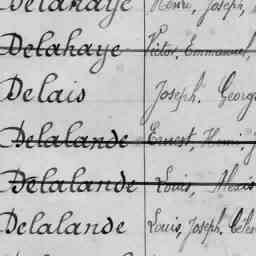 Delahaye Henri, Joseph,
Delahaye Victor, Emmanuel,
Delais Joseph. Georg
Delalande Ernest, Henri, J
Delalande Louis, Alexis
Delalande Louis, Joseph. Céles